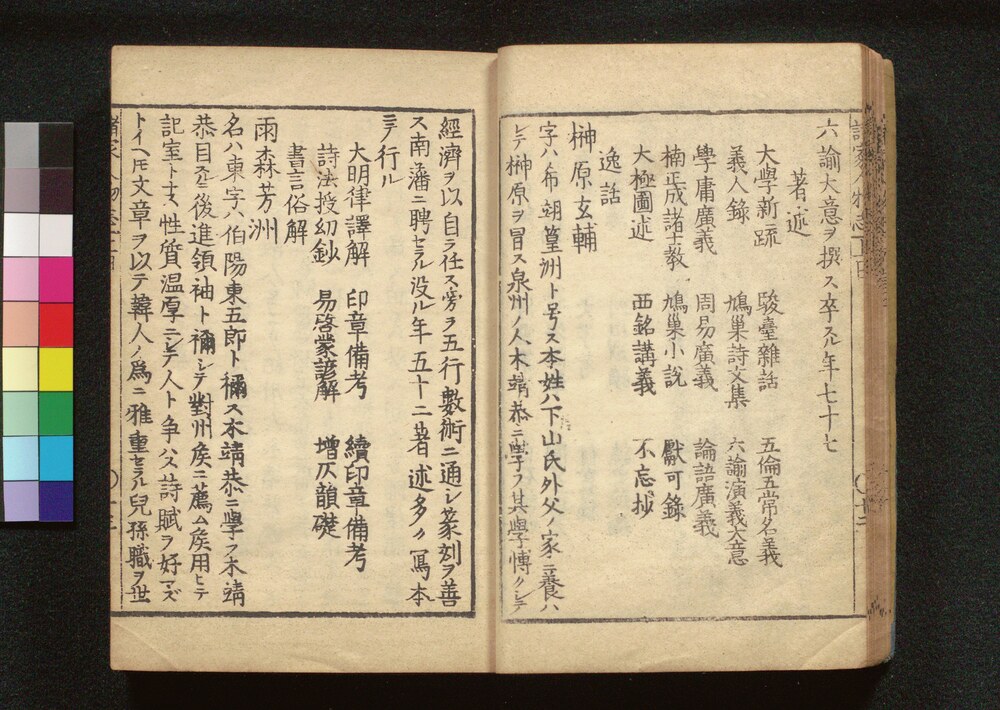 六諭大意ヲ撰ス卒スル年七十七
著述
大學新疏 駿臺雜話 五倫五常名義
義人錄 鳩巢詩文集 六諭演義大意
學庸廣義 周易廣義 論語廣義
楠正成諸士教 鳩巢小說 獻可錄
大極圖述 西銘講義 不忘抄
逸話
榊原玄輔
字ハ希翊篁洲ト号ス本姓ハ下山氏外父ノ家ニ養ハ
レテ榊原ヲ冒ス泉州ノ人木靖恭ニ學フ其學愽クシテ
經濟ヲ以自ラ任ス旁ラ五行數術ニ通シ篆刻ヲ善
ス南瀋ニ聘セラル没ル年五十二著述多ク寫本
ニテ行ル
大明律譯解 印章備考 續印章備考
詩法授幼鈔 易啓蒙諺解 增仄韻礎
書言俗解
雨森芳洲
名ハ東字ハ伯陽東五郎ト稱ス木靖恭ニ學フ木靖
恭目スルニ後進領袖ト稱シテ對州矦ニ薦ム矦用ヒテ
記室トナス性質温厚ニシテ人ト争ハス詩賦ヲ好マズ
トイヘ𪜈文章ヲ以テ韓人ノ爲ニ雅重セラル兒孫職ヲ世